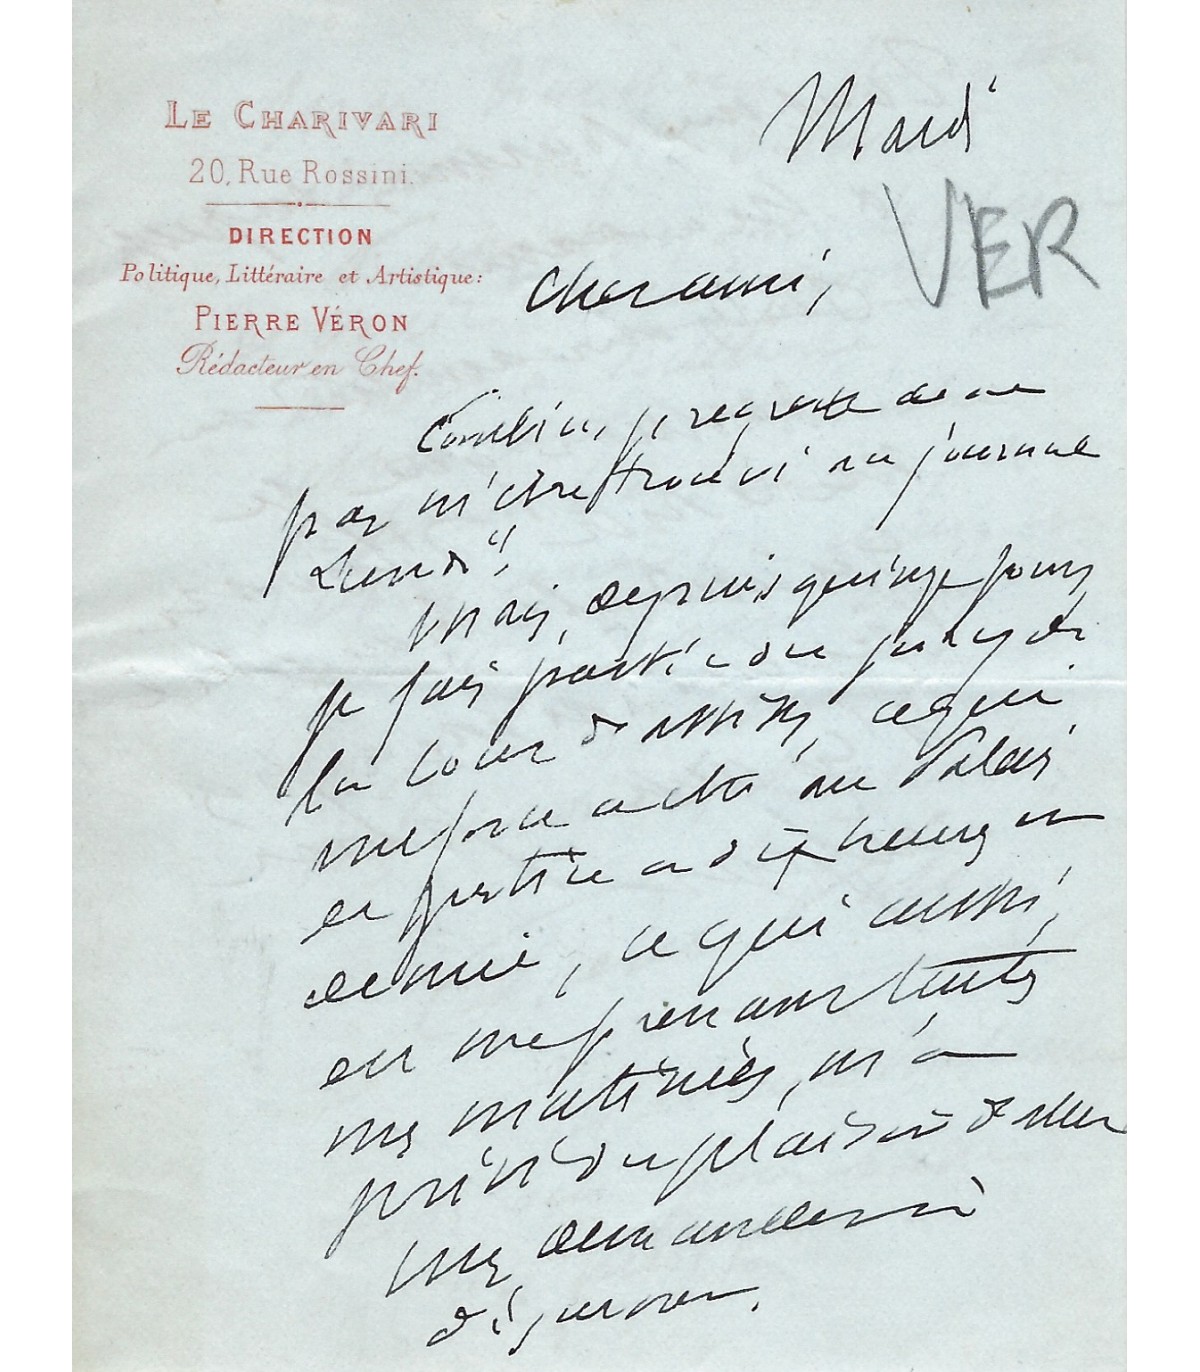 LE CHARIVARI
20, Rue Rossini.
DIRECTION
Politique, Littéraire et Artistique:
PIERRE VÉRON
Rédacteur en Chef.
Mardi
VER
Cher ami,
Combien je regrette de ne
pas m'être trouvé au journal
Lundi!
Mais, depuis quinze jours,
je fais partie du jury de
la Cour d'assises, ce qui
me force a être au Palais
de justice a dix heures et
demie, ce qui aussi,
en me prenant toutes
mes matinées, m'a
privé du plaisir d'aller
vous demander à
déjeuner.